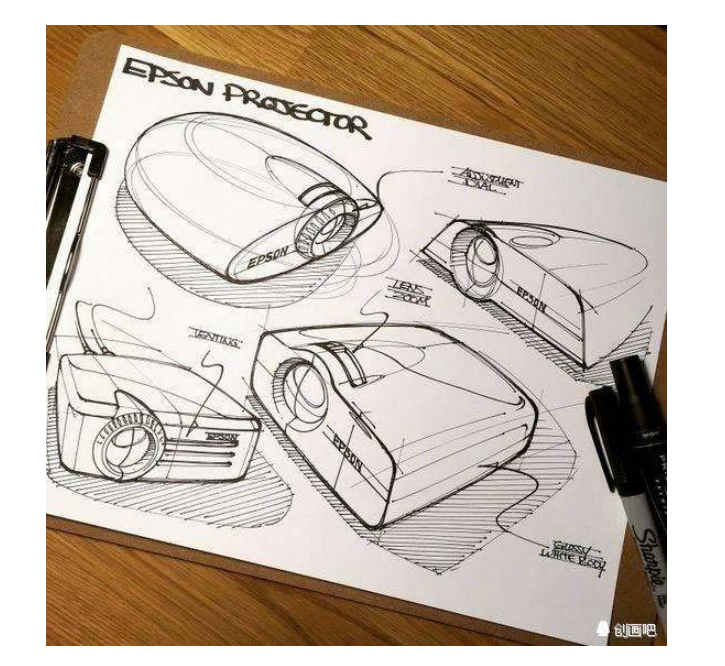 EPSON PROJECTOR
ADJUSTMENT
DIAL
EPSON
EPSON
LENS
ZOOM
EPSON
EPSON
GLOSSY
WHITE BODY
Sharpie
创画吧